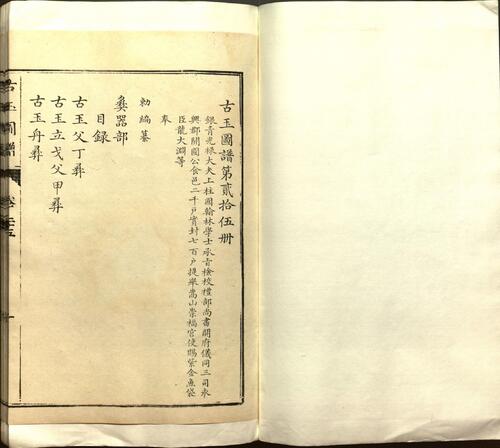 古玉圖譜第貳拾伍册
銀青光祿大夫上柱國翰林學士承旨檢校禮部尚書開府儀同三司永
興郡開國公食邑二千戶實封七百戶提舉嵩山崇福宮使賜紫金魚袋
臣龍大淵等
奉
勑編纂
彝器部
目錄
古玉父丁彝
古玉立戈父甲彝
古玉舟彝
古玉圖譜